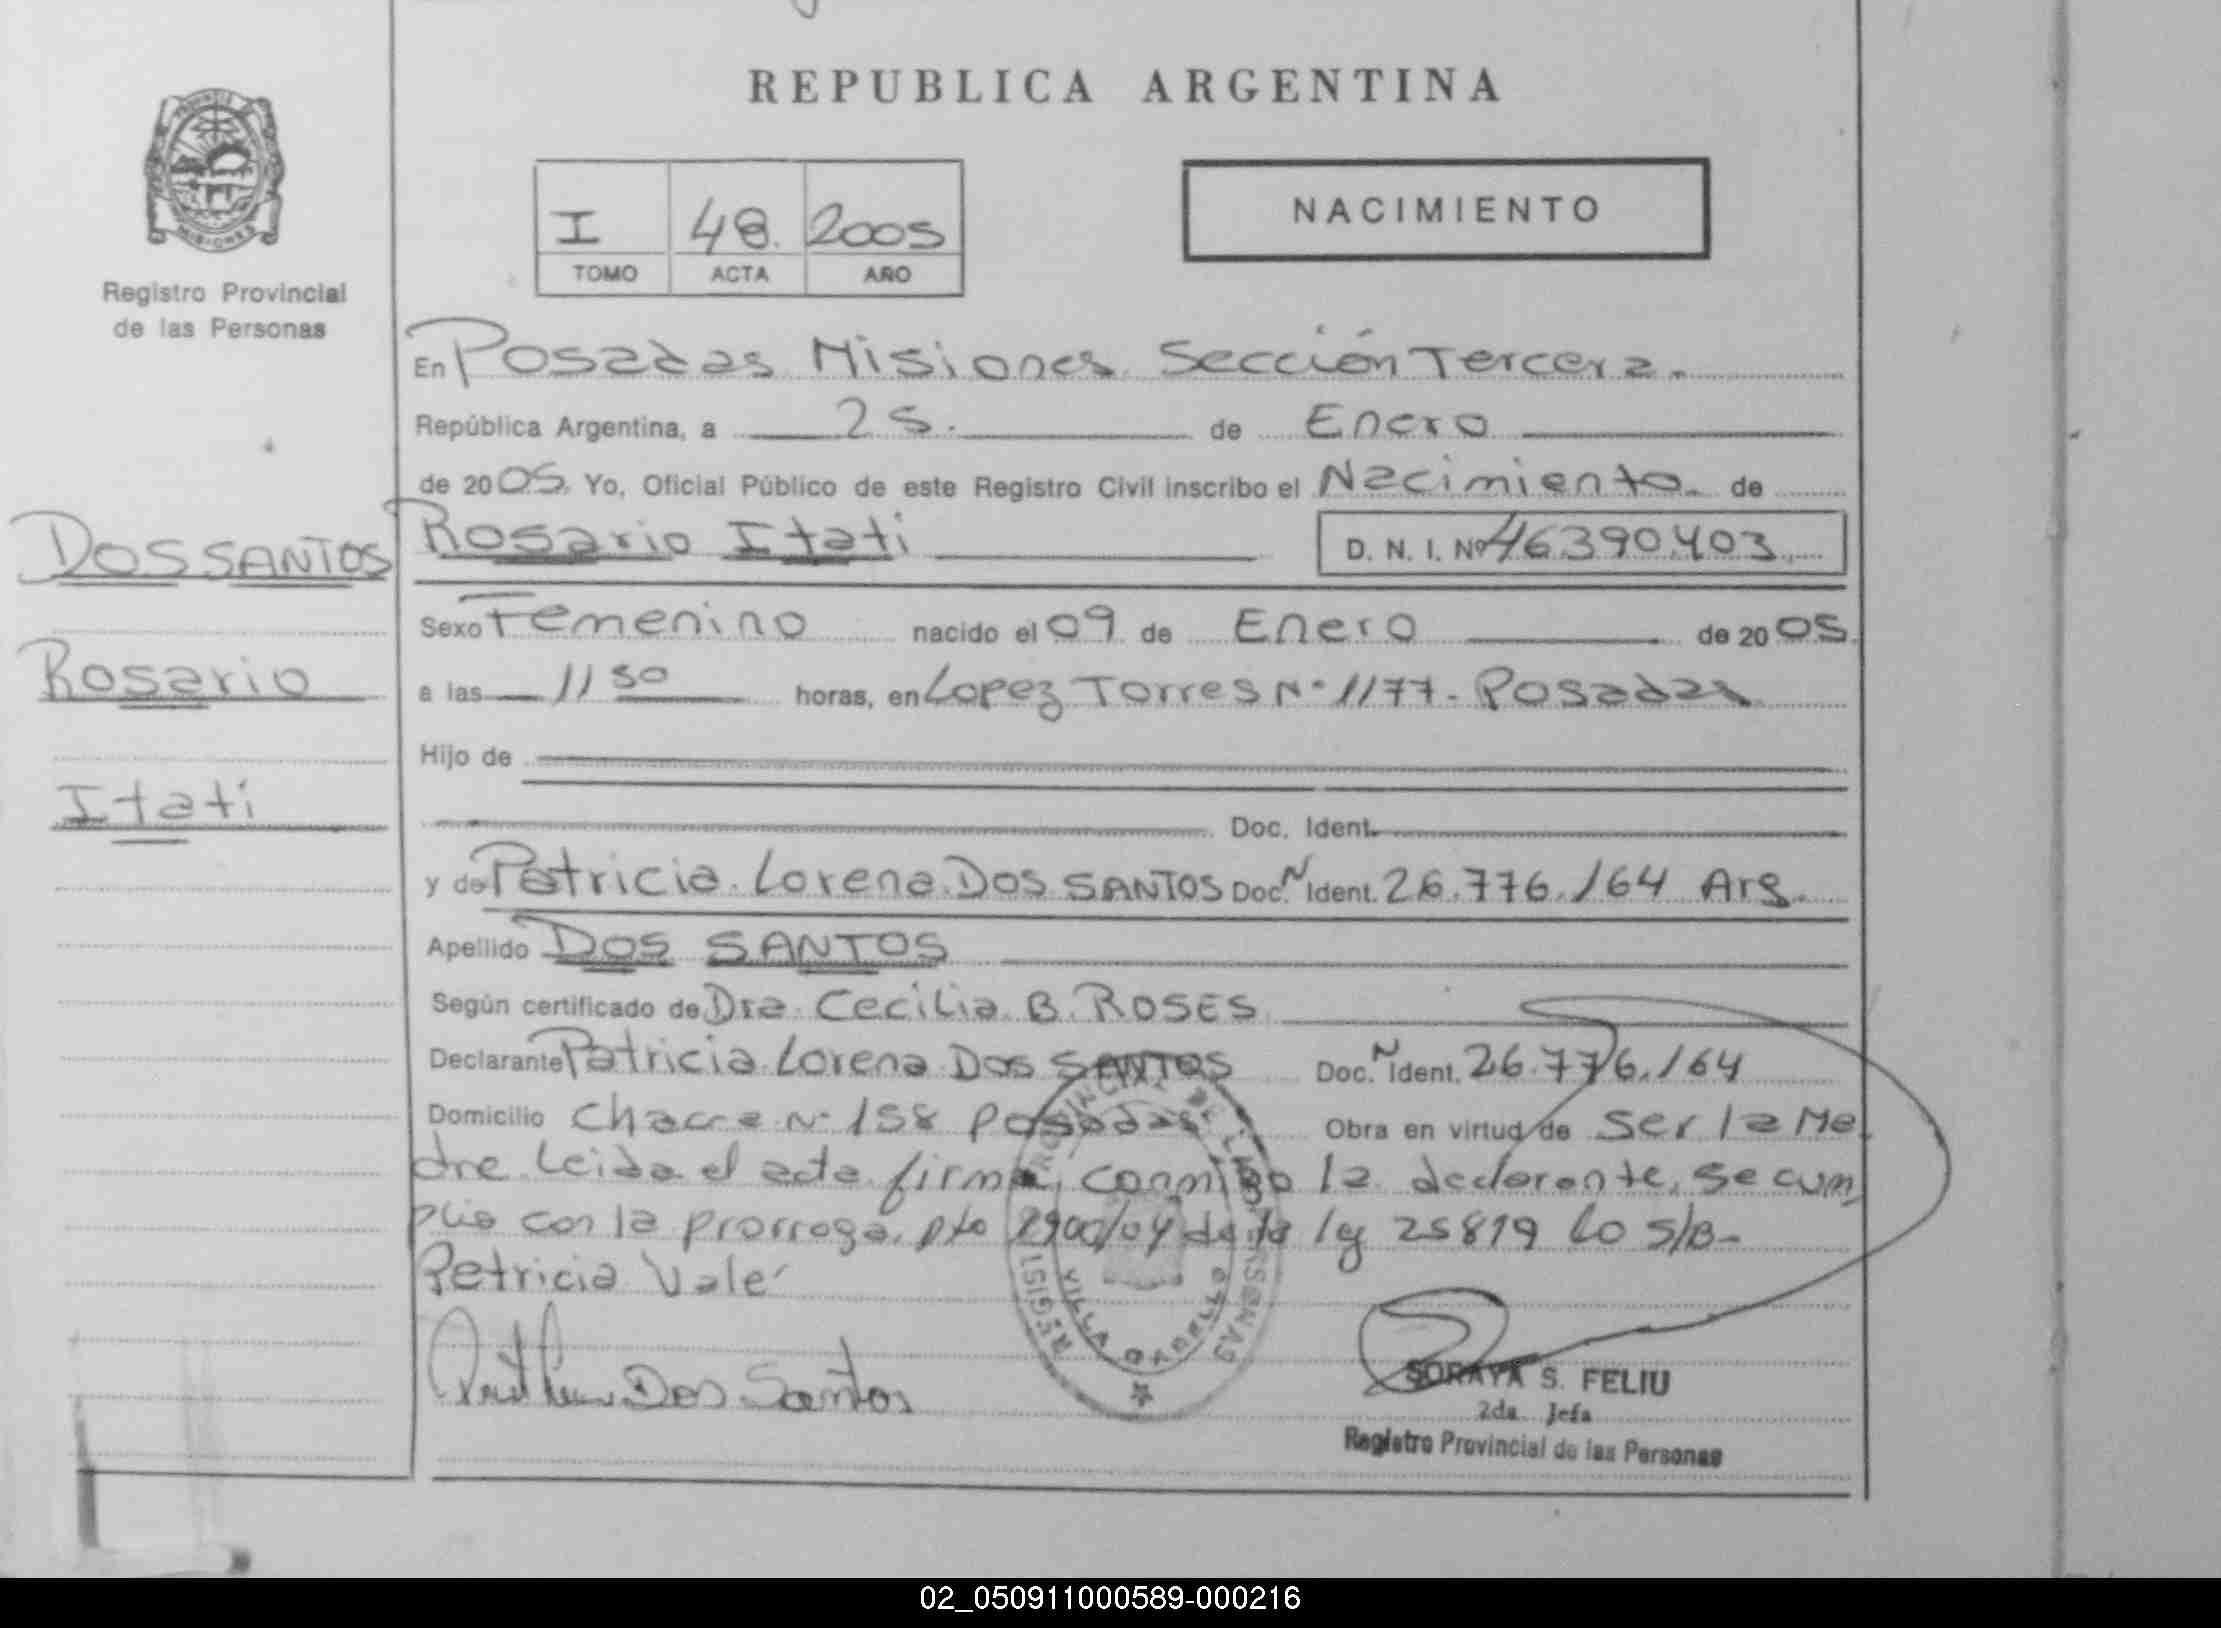 REPUBLICA ARGENTINA
MISIONES
Registro Provincial
de las Personas
I 48. 2005
TOMO ACTA AÑO
NACIMIENTO
En Posadas Misiones Sección Tercera.
República Argentina, a 25. de Enero
de 2005. Yo, Oficial Público de este Registro Civil inscribo el Nacimiento. de
DOS SANTOS
Rosario Itati D. N. I. Nº 46.390.403
Sexo Femenino nacido el 09 de Enero de 2005.
Rosario
a las 11 50 horas, en Lopez Torres Nº 1177 - Posadas
Hijo de
Itati
Doc. Ident.
y de Patricia Lorena DOS SANTOS Doc. N Ident. 26.776.164 Arg.
Apellido DOS SANTOS
Según certificado de Dra. Cecilia B. ROSES
Declarante Patricia Lorena DOS SANTOS Doc. N Ident. 26.776.164
Domicilio Chacra Nº 158 Posadas Obra en virtud de ser la Ma
dre Leida el acta firma, conmigo la declarante, se cum
plio con la prorroga. Dto 2900/04 de la ley 25819 Lo S/B-
Patricia Vale
Dos Santos
REGIST PROVINCIAL DE LAS PERSONAS
VILLA
SORAYA S. FELIU
2da. Jefa
Registro Provincial de las Personas
02_050911000589-000216